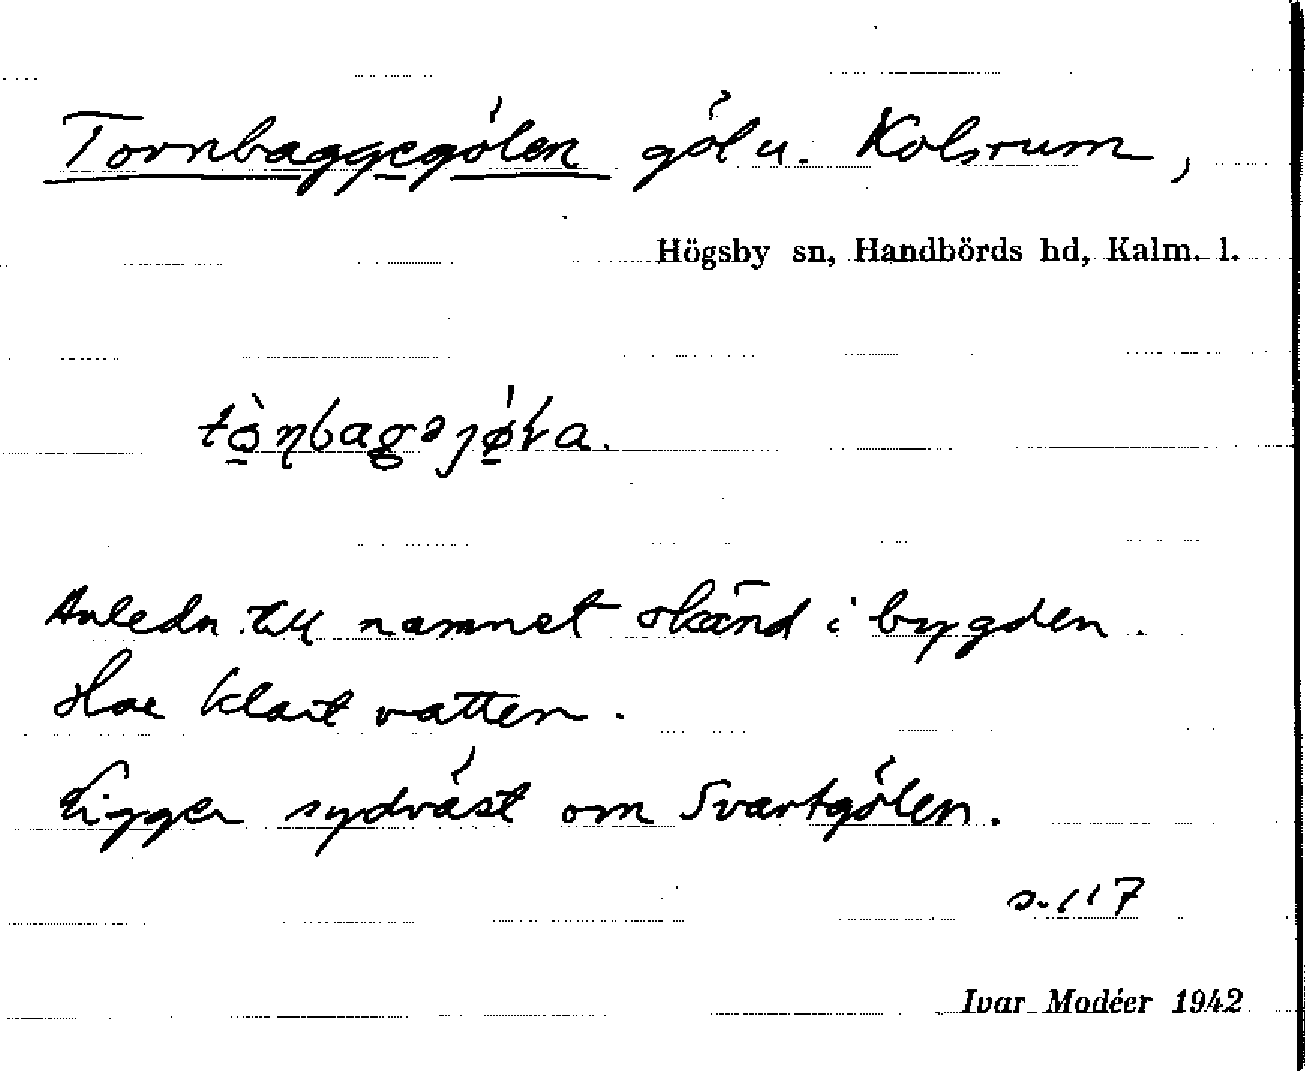 Tornbaggegölen göl u. Kolsrum,
Högsby sn, Handbörds hd, Kalm. l.
tò̱ɳbagəjø̱̀ɽa.
Anledn till namnet okänd i bygden.
Har klart vatten.
Ligger sydväst om Svartgölen.
s. 117
Ivar Modéer 1942